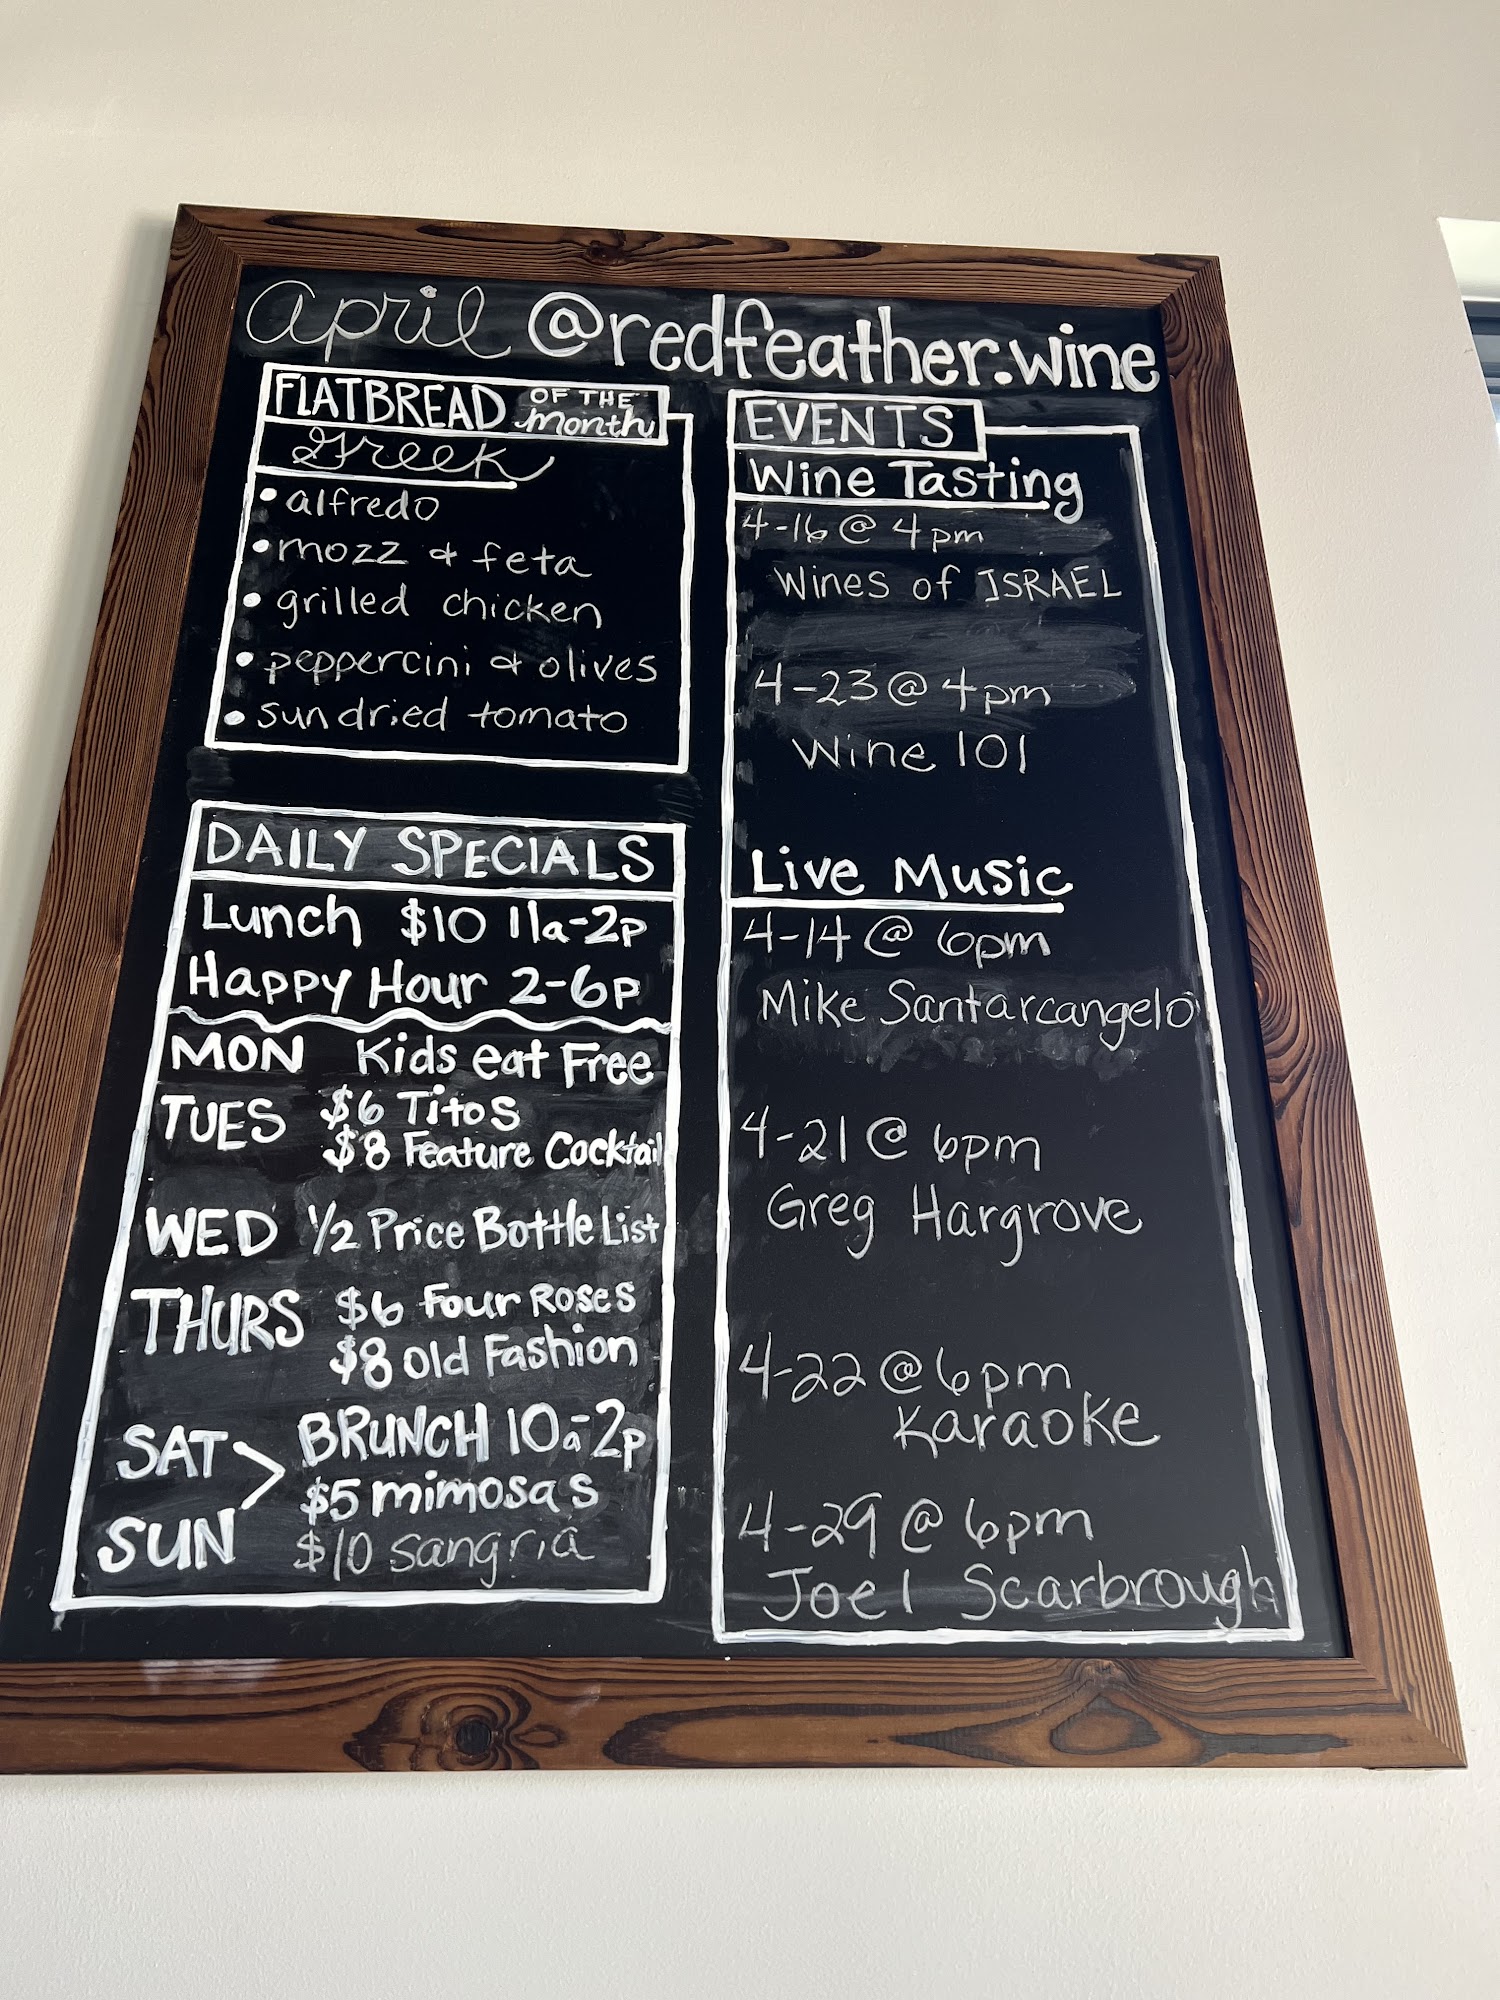 april @redfeather.wine
FLATBREAD OF THE month
Greek
• alfredo
• mozz & feta
• grilled chicken
• peppercini & olives
• sun dried tomato
DAILY SPECIALS
Lunch $10 11a-2p
Happy Hour 2-6p
MON Kids eat Free
TUES $6 Titos
$8 Feature Cocktail
WED 1/2 Price Bottle List
THURS $6 Four Roses
$8 Old Fashion
SAT > BRUNCH 10a-2p
$5 mimosas
SUN $10 Sangria
EVENTS
Wine Tasting
4-16 @ 4pm
Wines of ISRAEL
4-23 @ 4pm
Wine 101
Live Music
4-14 @ 6pm
Mike Santarcangelo
4-21 @ 6pm
Greg Hargrove
4-22 @ 6pm
Karaoke
4-29 @ 6pm
Joel Scarbrough